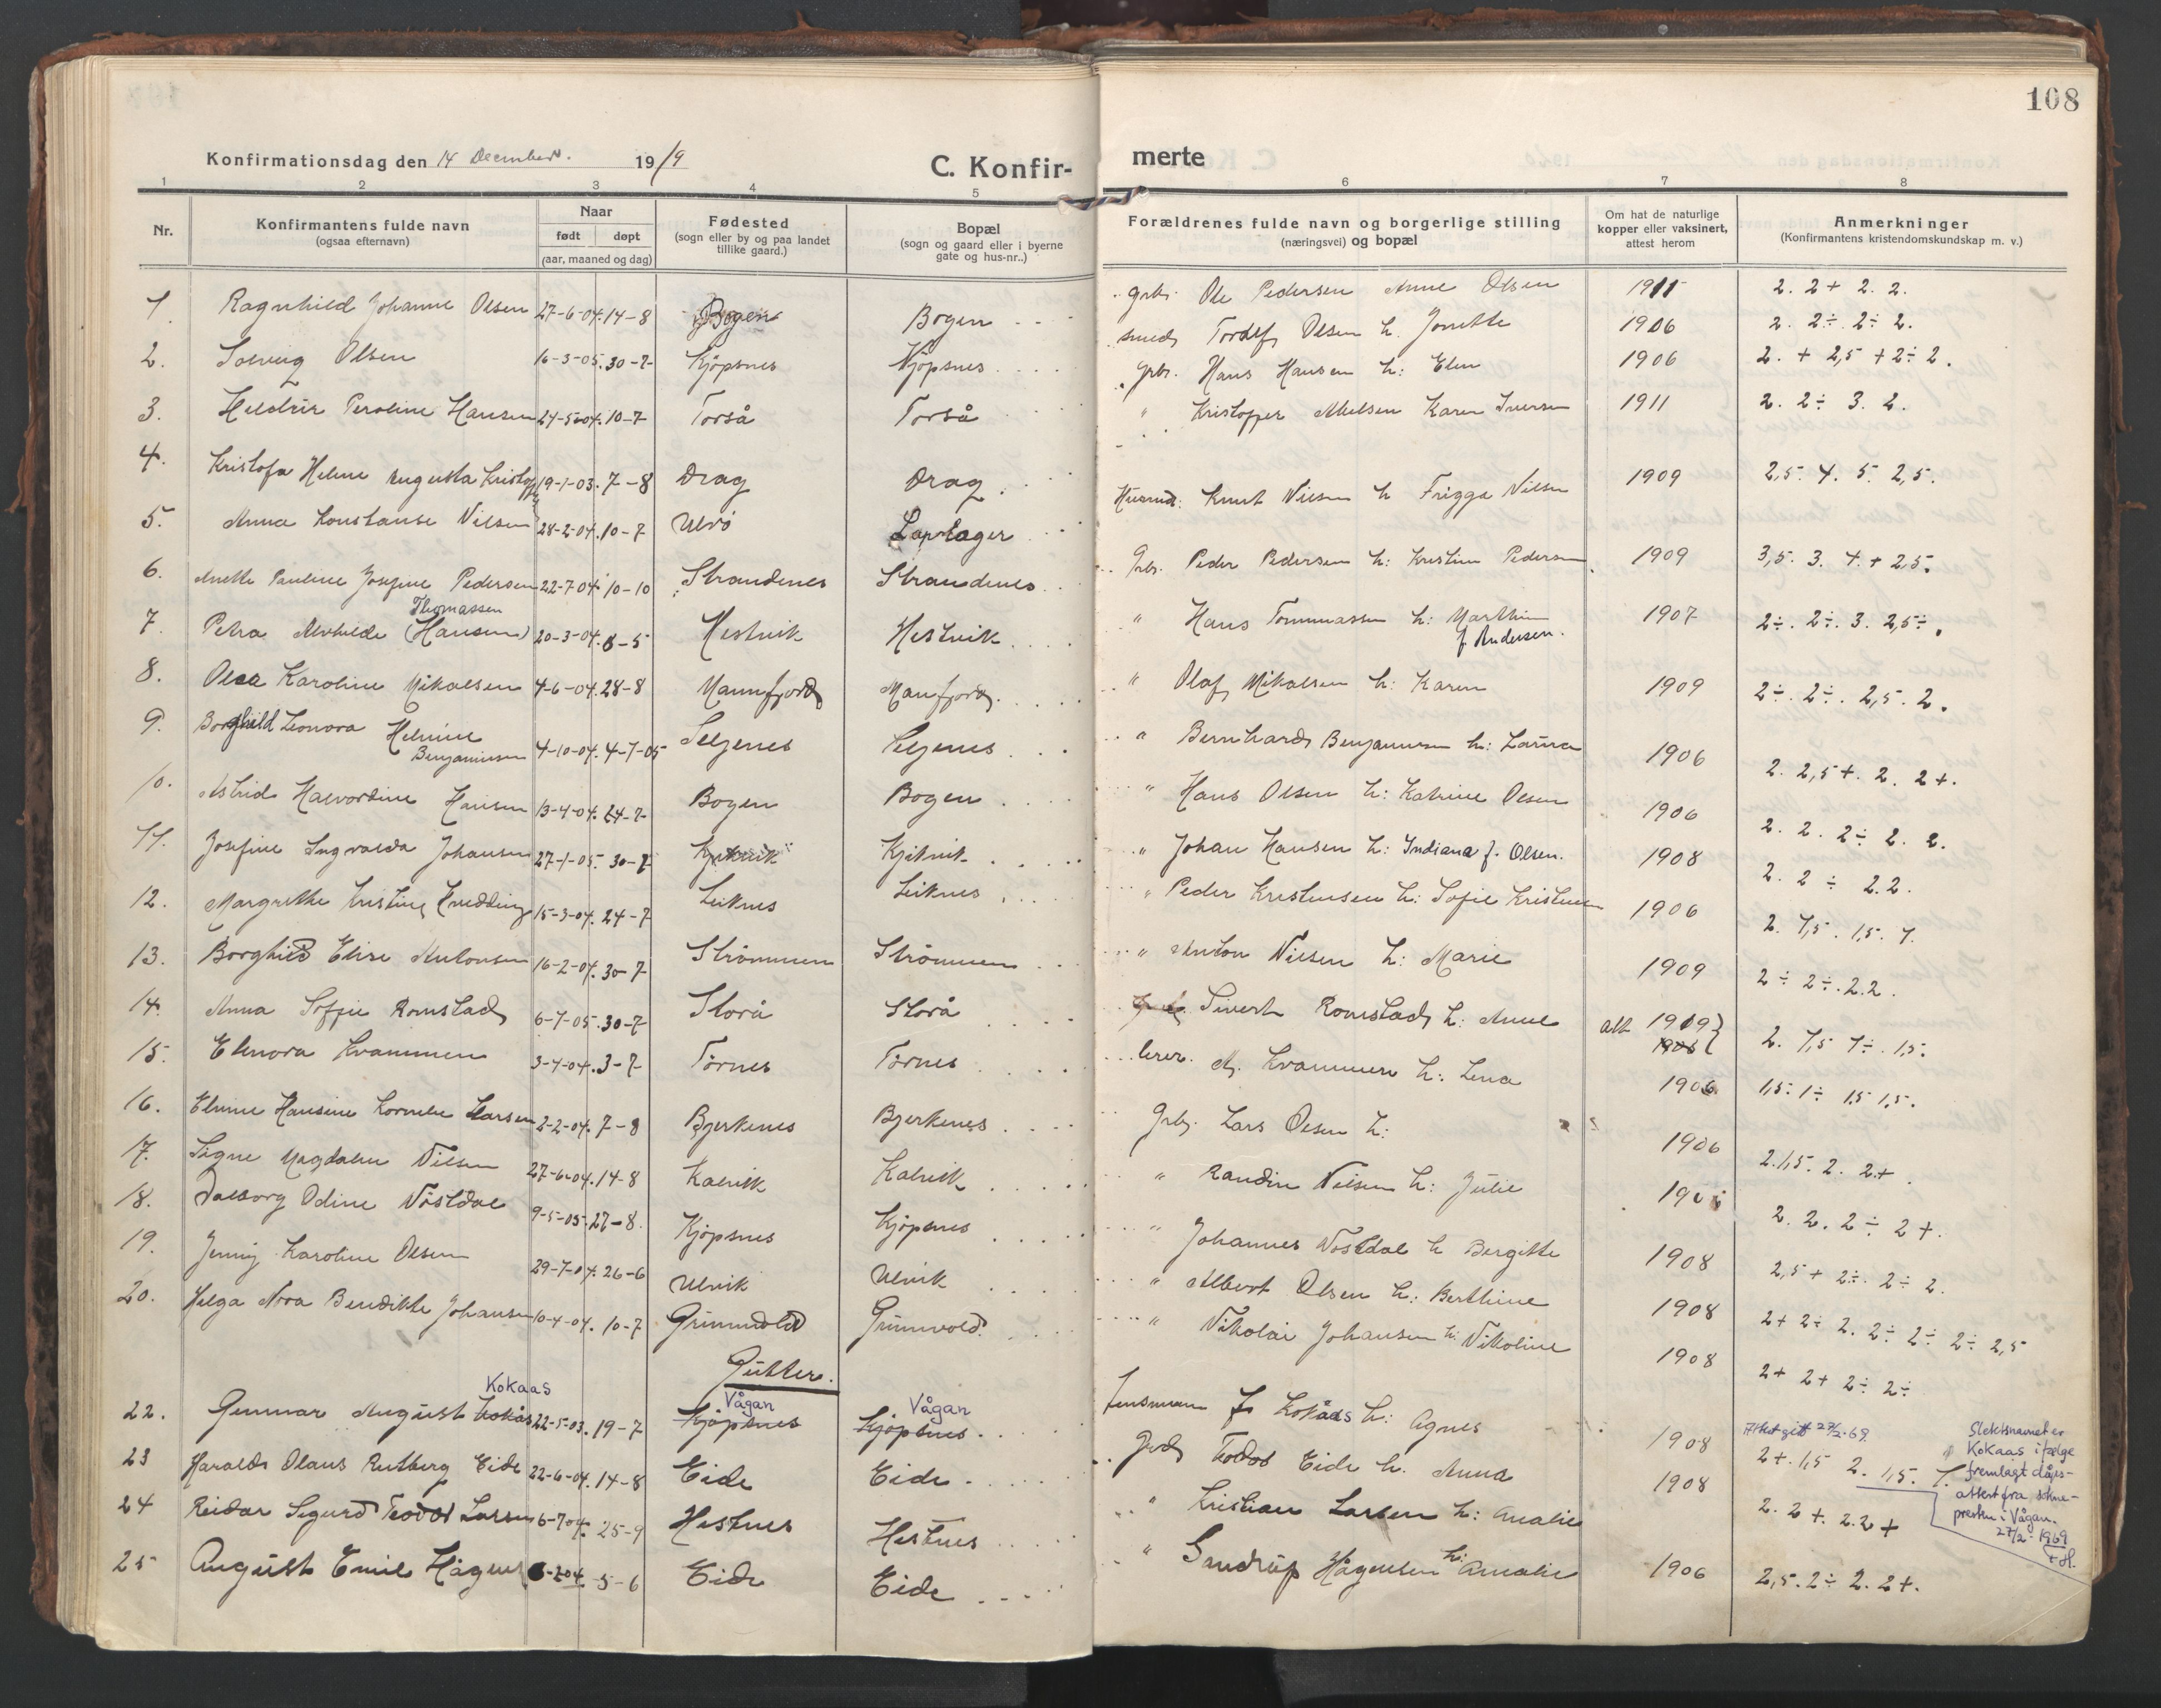 108
Konfirmationsdag den 14 December. 1919
C. Konfir-merte
1 2 3 4 5 6 7 8
Nr.
Konfirmantens fulde navn
(ogsaa efternavn)
Naar
født døpt
(aar, maaned og dag)
Fødested
(sogn eller by og paa landet
tillike gaard.)
Bopæl
(sogn og gaard eller i byerne
gate og hus-nr..)
Forældrenes fulde navn og borgerlige stilling
(næringsvei) og bopæl
Om hat de naturlige
kopper eller vaksinert,
attest herom
Anmerkninger
(Konfirmantens kristendomskundskap m. v.)
1. Ragnhild Johanne Olsen 27-6-04. 14-8 Bogen Bogen grbr. Ole Pedersen Anne Olsen 1911 2. 2+ 2. 2.
2. Solveig Olsen 16-3-05. 30-7 Kjöpsnes Kjöpsnes smed Tordlf Olsen h. Jonette 1906 2. 2÷ 2÷ 2.
3. Heldrir Peroline Hansen 24-5-04. 10-7 Torså Torså grbr. Hans Hansen h: Elen 1906 2. + 2,5 + 2÷ 2.
4. Kristofa Helene Augusta 19-1-03. 7-8 Drag Drag " Kristoffer Abelsen Karen Iversen 1911 2. 2÷ 3. 2.
5. Anna Konstanse Nilsen 28-2-04. 10-7 Ulvö Lapleger Knut Nilsen h Frigga Nilsen 1909 2,5. 4. 5. 2,5.
6. Anette Pauline Josefine Pedersen 22-7-04. 10-10 Strandenes Strandenes Grbr. Peder Pedersen h: Kristine Pedersen 1909 3,5. 3. 4.+ 2,5.
Thomassen
7. Petra Alvhilde (Hansen) 20-3-04. 8-5 Hestvik Hestvik " Hans Tommassen h: Marthine 1907 2÷. 2÷. 3. 2,5÷.
f. Andersen.
8. Olea Karoline Mikalsen 4-6-04. 28-8 Mannfjord Manfjord " Olaf Mikalsen h: Karen 1909 2÷. 2÷. 2,5. 2.
9. Borghild Leonora Helmine
Benjaminsen 4-10-04. 4-7-05 Seljenes Seljenes " Bernhard Benjaminsen h: Laura 1906 2. 2,5+. 2. 2+.
10. Astrid Halvordine Hansen 13-4-04. 24-7 Bogen Bogen " Hans Olsen h: Katrine Olsen 1906 2. 2. 2÷ 2. 2.
11. Josefine Ingvalda Johansen 27-1-05. 30-7 Kjikvik Kjikvik " Johan Hansen h: Indiana f. Olsen. 1908 2. 2 ÷ 2.2.
12. Margrethe Kristine 15-3-04. 24-7 Leiknes Leiknes " Peder Kristensen h: Sofie Kristensen 1906 2. 1,5. 1,5. 1.
13. Borghild Elise Antonsen 16-2-04. 30-7 Strömmen Strömmen " Anton Nilsen h: Marie 1909 2÷ 2÷. 2.2.
14. Anna Soffie Romstad 6-7-05. 30-7 Storå Storå Sivert Romstad h: Anne att 1919 } 2. 1,5 1÷. 1,5.
1906
15. Elenora Kvammen 3-4-04. 3-7 Törnes Törnes lærer. M. Kvammen h: Lena 1906. 1,5. 1÷ 1,5 1,5.
16. Elmine Hansine Kornelie Larsen 2-2-04. 7-8 Bjerkenes Bjerkenes Grbr. Lars Olsen h: 1906 2. 1,5. 2. 2+.
17. Signe Magdalene Nilsen 27-6-04. 14-8 Kalvik Kalvik " Randin Nilsen h: Julie 2. 2. 2÷ 2+.
18. Valborg Odine Vöstdal 9-5-05. 27-8. Kjöpsnes Kjöpsnes " Johannes Vöstdal h Bergitte 1908 2,5+ 2÷. 2÷ 2.
19. Jenny Karoline Olsen 29-7-04. 26-6 Ulvik Ulvik " Albert Olsen h: Berthine 1908 2+ 2÷ 2. 2÷ 2÷ 2÷ 2,5
20. Helga Nora Bendikte Johansen 10-4-04. 10-7 Grunnvold Grunnvold. " Nikolai Johansen h: Nikoline 1908 2+ 2+ 2÷ 2÷
Gutter.
Kokaas Vågan Vågan
22. Gunnar August Kokås 22-5-03. 19-7 Kjöpsnes Kjöpsnes. Lensmann J. Kokåås h: Agnes 1908 2+. 1,5 2. 1,5. 1.
Attest gitt 27/2-69.
Slektsnamnet er
Kokaas ifølge
fremlagt dåps-
attest fra sokne-
presten i Vågan.
27/2-1969
23 Harald Olaus Rutberg Eide 22-6-04. 14-8 Eide Eide. Teodor Eide h. Anna 1908 2. 2+. 2.2+
24 Reidar Sigurd Teodor Larsen 6-7-04. 25-9 Hestnes Hestnes " Kristian Larsen h: Amalie
25 August Emil 5-6 Eide Eide " Sandrup Hågensen h: Amalie 1906 2,5. 2÷ 2. 2+.